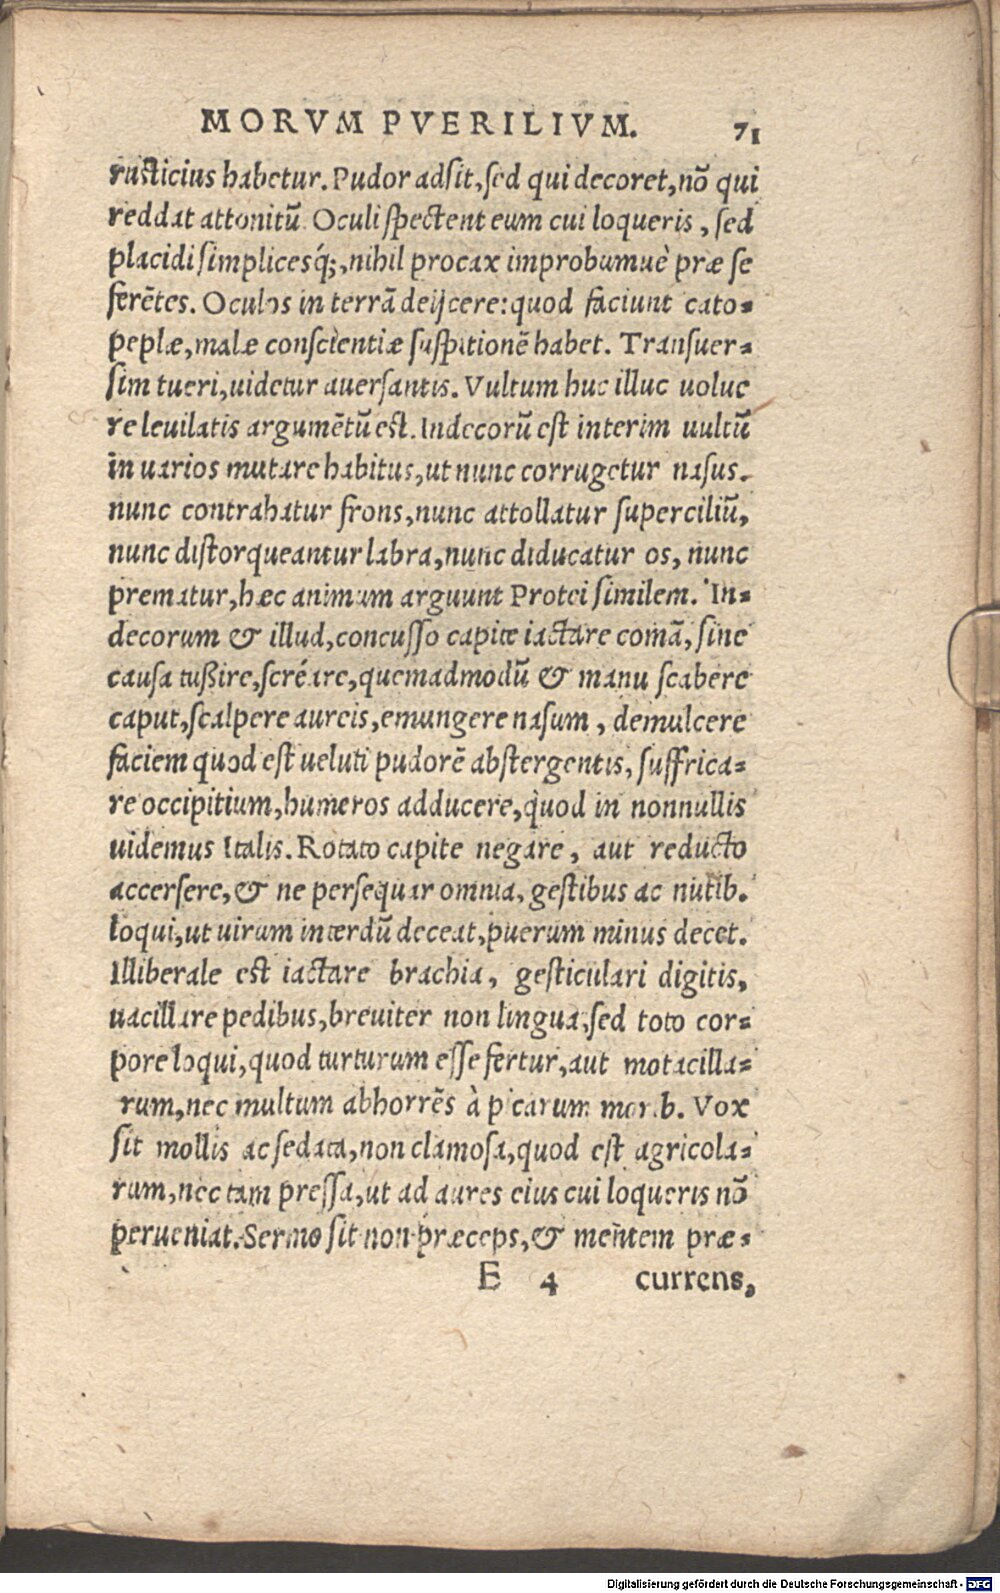 MORVM PVERILIVM. 71
rusticius habetur. Pudor adsit, sed qui decoret, nõ qui
reddat attonitũ. Oculi spectent eum cui loqueris, sed
placidi simplicesq́;, nihil procax improbumuè præ se
ferẽtes. Oculos in terrã deijcere: quod faciunt cato-
peplæ, malæ conscientiæ suspitionẽ habet. Transuer-
sim tueri, uidetur auersantis. Vultum huc illuc uolue
re leuilatis argumẽtũ est. Indecorũ est interim uultũ
in uarios mutare habitus, ut nunc corrugetur nasus.
nunc contrahatur frons, nunc attollatur superciliũ,
nunc distorqueantur labra, nunc diducatur os, nunc
prematur, hæc animum arguunt Protei similem. In-
decorum & illud, concusso capite iactare comã, sine
causa tußire, screare, quemadmodũ & manu scabere
caput, scalpere aureis, emungere nasum, demulcere
faciem quod est ueluti pudorẽ abstergentis, suffrica-
re occipitium, humeros adducere, quod in nonnullis
uidemus Italis. Rotato capite negare, aut reducto
accersere, & ne persequar omnia, gestibus ac nutib.
loqui, ut uirum interdũ deceat, puerum minus decet.
Illiberale est iactare brachia, gesticulari digitis,
uacillare pedibus, breuiter non lingua, sed toto cor-
pore loqui, quod turturum esse fertur, aut motacilla-
rum, nec multum abhorrẽs à picarum morib. Vox
sit mollis ac sedata, non clamosa, quod est agricola-
rum, nec tam pressa, ut ad aures eius cui loqueris nõ
perueniat. Sermo sit non præceps, & mentem præ-
E 4 currens,
Digitalisierung gefördert durch die Deutsche Forschungsgemeinschaft - DFG